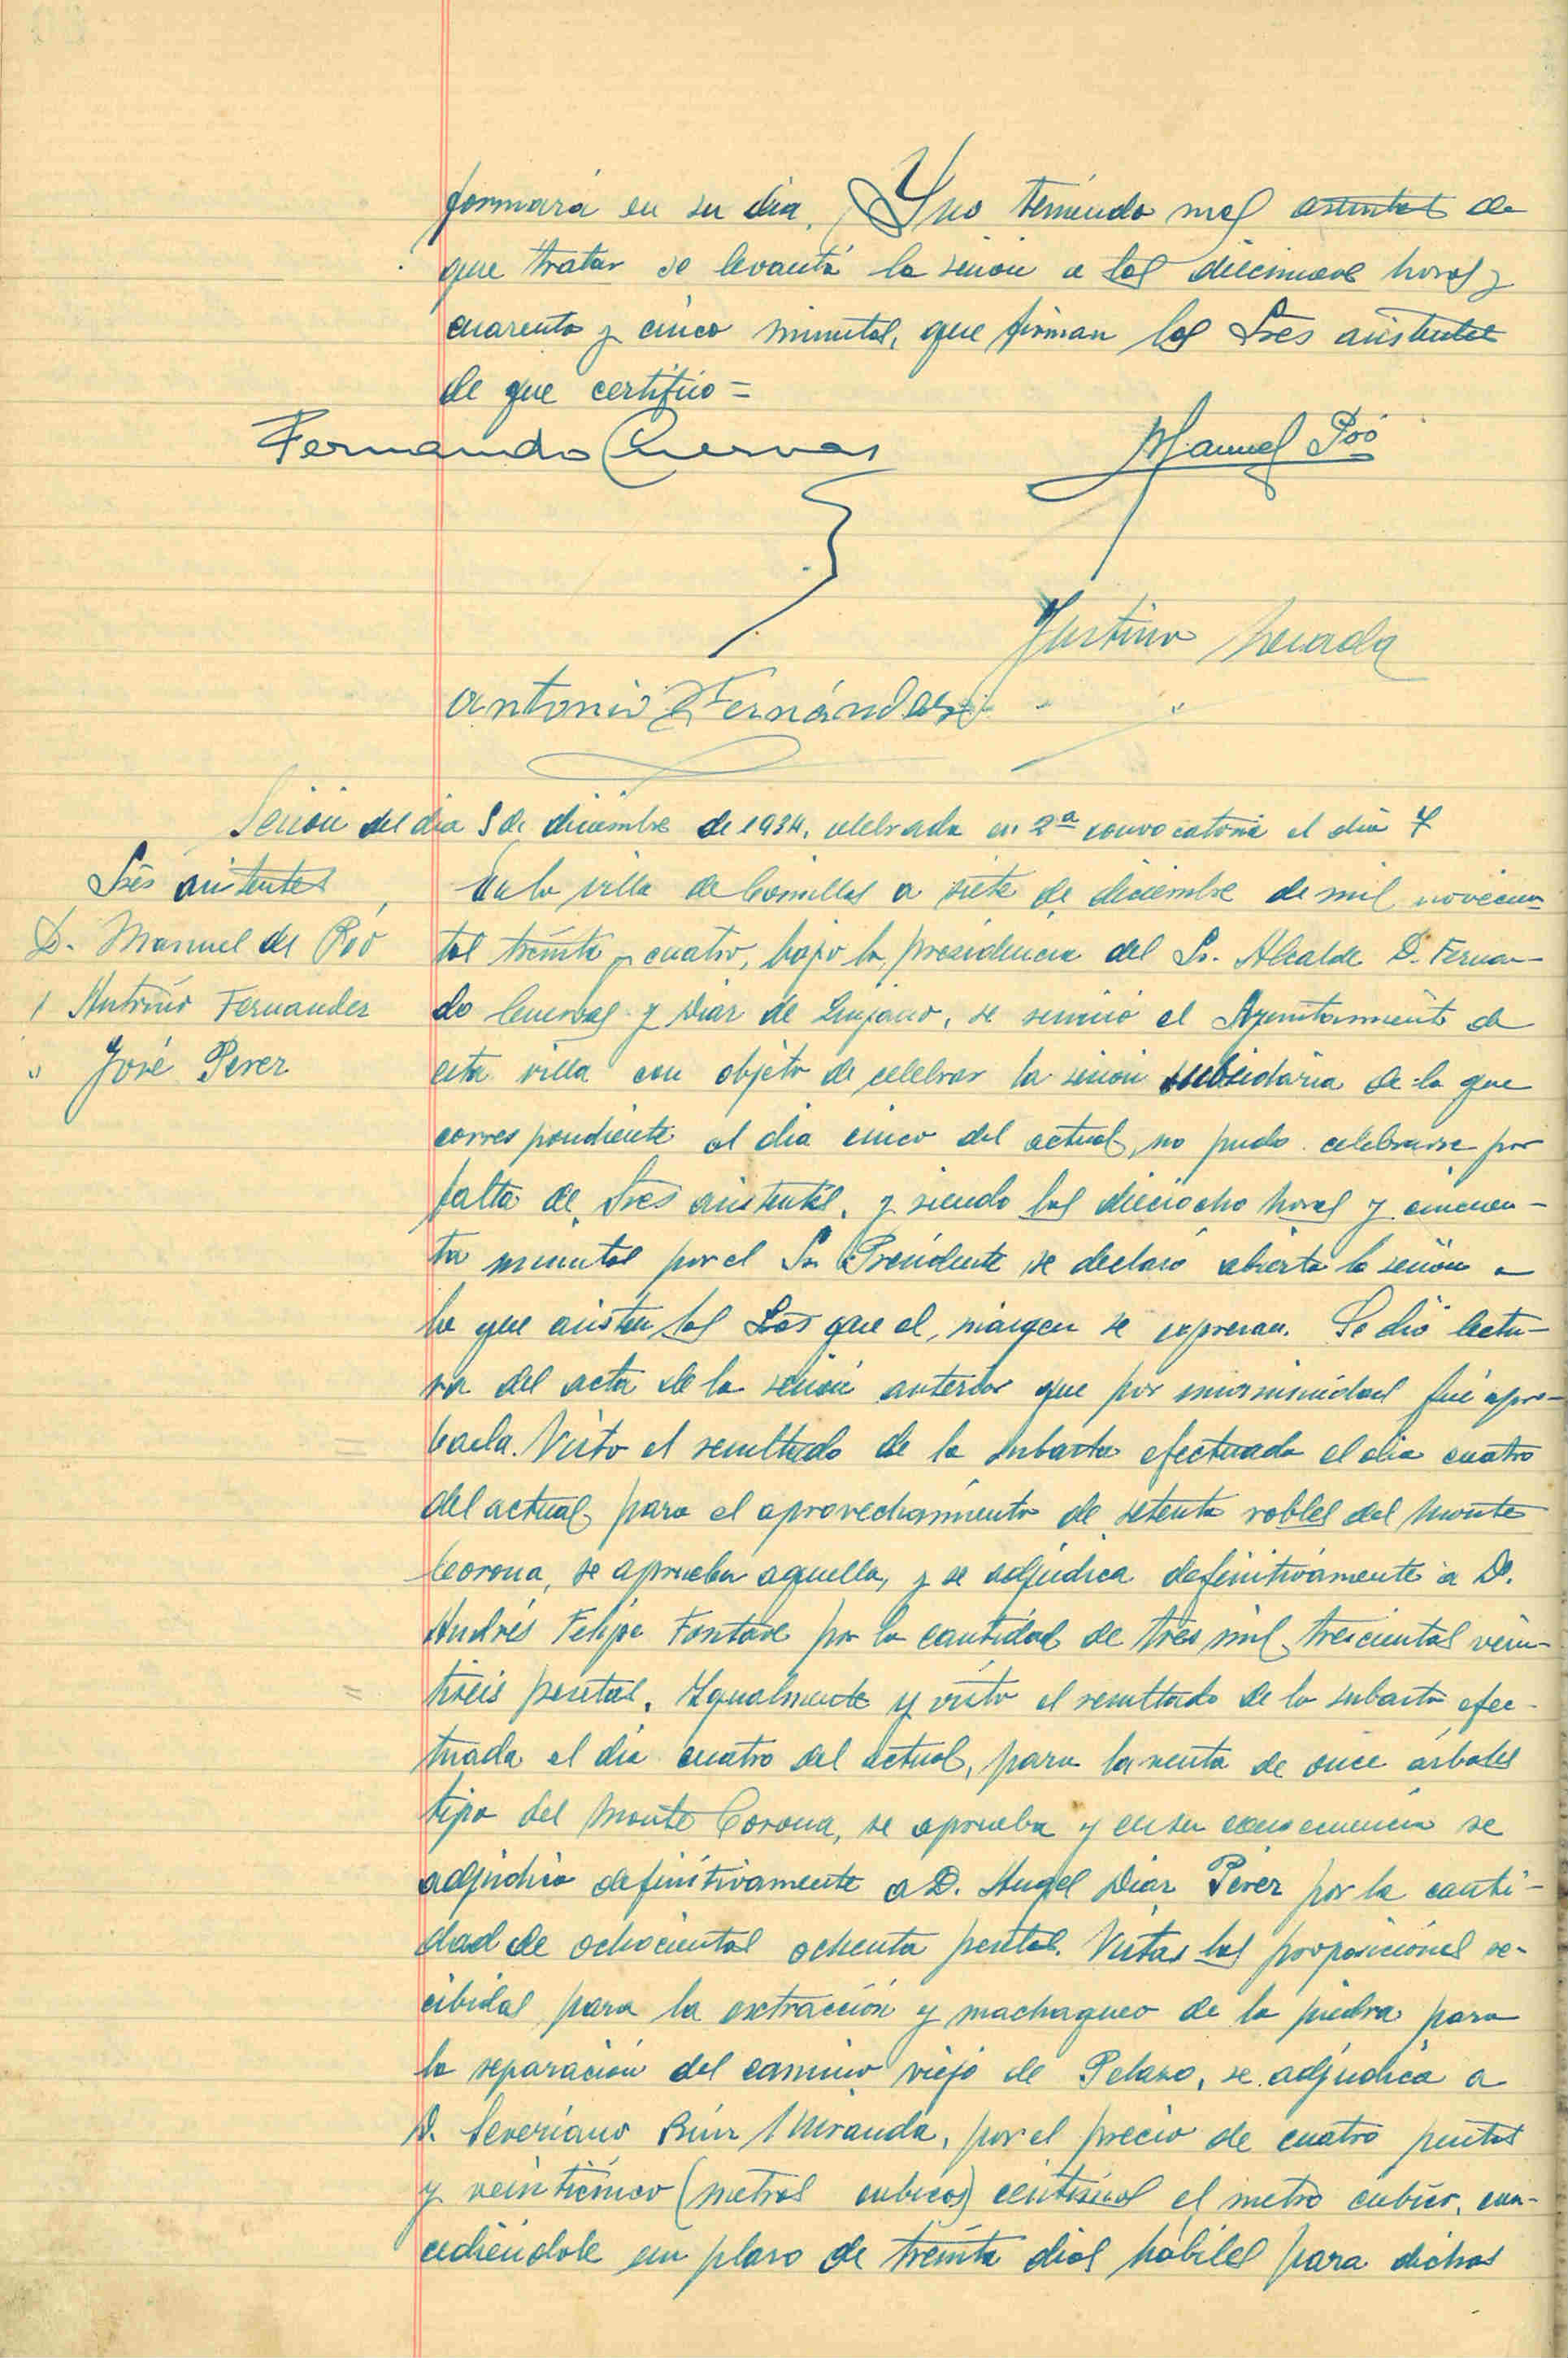 formará en su día. Y no teniendo mas asuntos de
que tratar se levantó la sesion a las diecinueve horas y
cuarenta y cinco minutos, que firman los Sres asistentes
de que certifico =
Fernando Cuevas
Manuel Poó
Justino
Antonio Fernández
Sesion del dia 5 de diciembre de 1934, celebrada en 2ª convocatoria el dia 7
Sres asistentes
D. Manuel del Poó
" Antonio Fernandez
" José Perez
En la villa de Comillas a siete de diciembre de mil novecien-
tos treinta y cuatro, bajo la presidencia del Sr. Alcalde D. Fernan-
do Cuevas y Diaz de Quijano, se reunió el Ayuntamiento de
esta villa con objeto de celebrar la sesion subsidaria de la que
correspondiente al dia cinco del actual, no pudo celebrarse por
falta de Sres asistentes, y siendo las dieciocho horas y cincuen-
ta minutos por el Sr. Presidente se declaró abierta la sesion a
la que asisten los Sres que al margen se expresan. Se dió lectu-
ra del acta de la sesión anterior que por unanimidad fué apro-
bada. Visto el resultado de la subasta efectuada el dia cuatro
del actual para el aprovechamiento de setenta robles del monte
Corona, se aprueba aquella, y se adjudica definitivamente a D.
Andrés Felipe Fontave por la cantidad de tres mil trescientas vein-
tiseis pesetas. Igualmente y visto el resultado de la subasta efec-
tuada el día cuatro del actual, para la venta de once árboles
tipo del monte Corona, se aprueba y en su consecuencia se
adjudica definitivamente a D. Angel Diaz Pérez por la canti-
dad de ochocientas ochenta pesetas. Vistas las proposiciones re-
cibidas para la extracción y machaqueo de la piedra para
la reparación del camino viejo de Pelazo, se adjudica a
D. Severiano Ruiz Miranda, por el precio de cuatro pesetas
y veinticinco (metros cubicos) centimos el metro cubico, con-
cediéndole un plazo de treinta dias hábiles para dichos